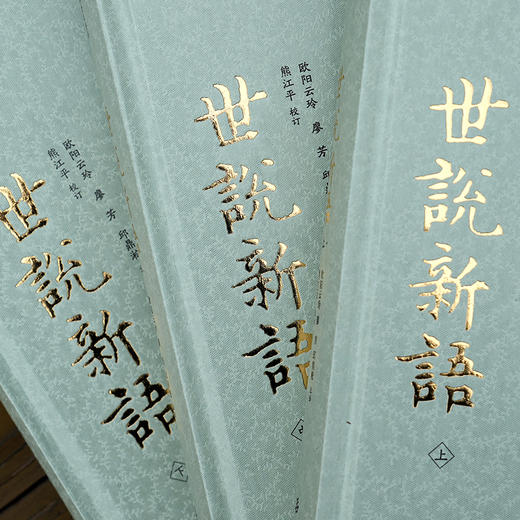 世說新語
上
世說新語
欧阳云玲 廖芳 邱
熊江平 校订
世說新語
下
欧阳云玲 廖芳 邱鼎
熊江平 校订